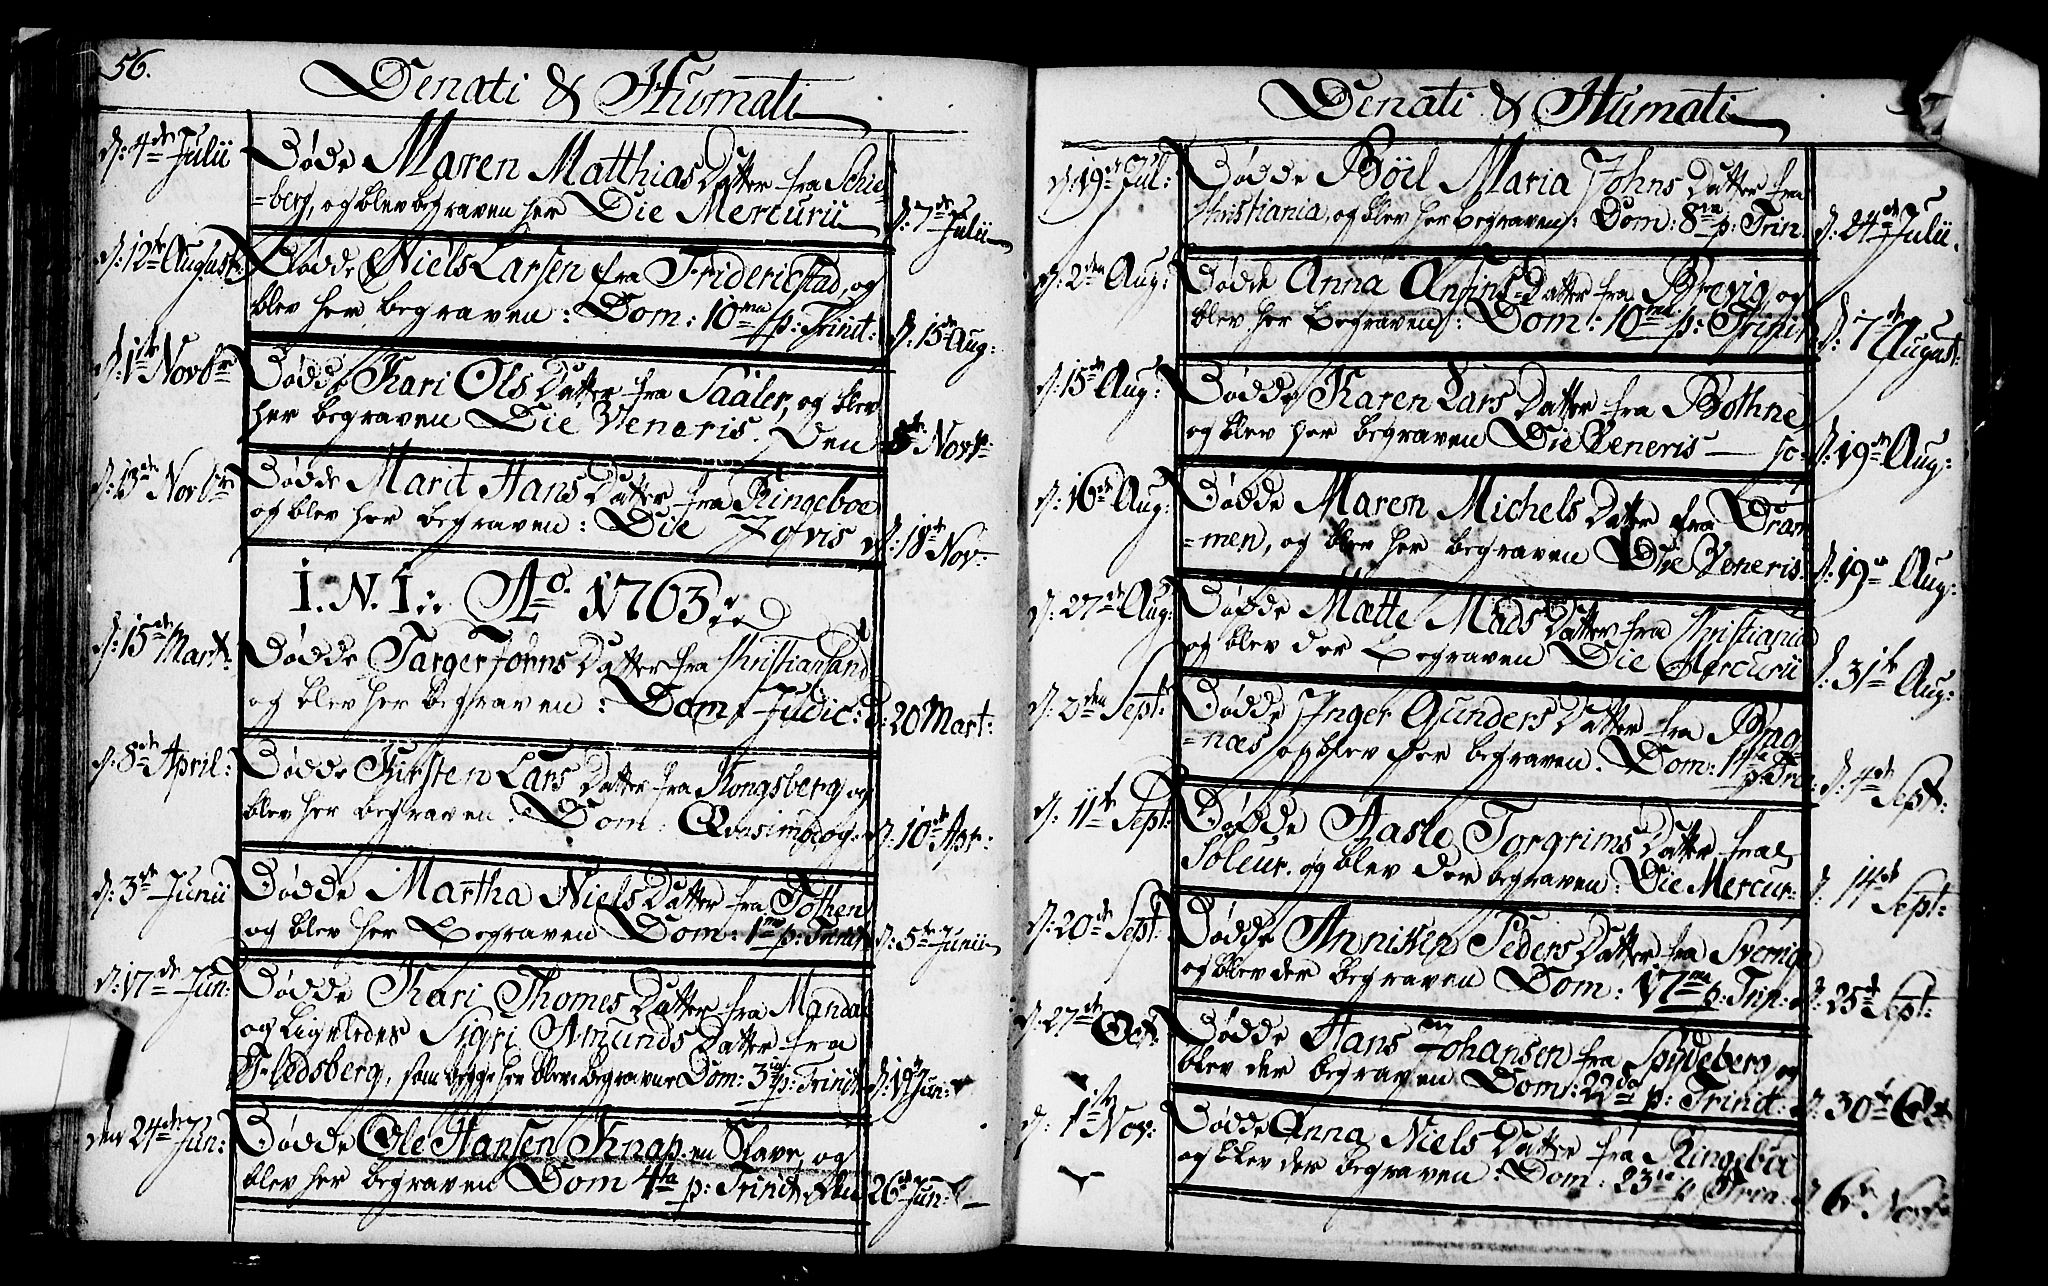 56.
Denati & Humati
d: 4de Julii Døde Maren Matthias Datter fra Schie-
=berg, og blev begraven her Die Mercurii d: 7de Julii
d: 12te August: Dødde Niels Larsen fra Friderichstad, og
blev her begraven: Dom: 10ma p: Trinit: d: 15de Aug:
d: 1ste Novbr Dødde Kari Ols Datter fra Saaler, og blev
her begraven Die Veneris. Den 5te Novr:
d: 13de Novbr Dødde Marit Hans Datter fra Ringeboe
og blev her begraven: Die Jovis d: 18de Nov:
I. N. I:: Ao. 1763::
d: 15de Mart: Dødde Targer Johns Datter fra Christiansand
og blev her begraven: Dom: Judic: d: 20 Mart:
d: 8de April: Dødde Kirsten Lars Datter fra Kongsberg, og
blev her begraven: Dom: Qvasimodog: d: 10de Apr:
d: 3de Junii Dødde Martha Niels Datter fra Tothen,
og blev her Begraven Dom: 1ma p: Trinit: d: 5te Junii
d: 17de Jun: Dødde Kari Thomes Datter fra Mandal
og Ligeledes Sigri Amunds Datter fra
Fledsberg, som begge her bleve begravne Dom: 3tia p: Trinit: d: 19de Jun:
den 24de Jun: Dødde Ole Hansen Knap. en Slave, og
blev her begraven Dom 4ta p: Trinit: den 26de Jun:
Denati & Humati
d: 19de Jul: Dødde Böil Maria Johns Datter fra
Christiania, og blev her begraven: Dom: 8va p: Trin. d: 24de Julii.
d: 2den Aug: Dødde Anna Anfins=Datter fra Brevig, og
blev her Begraven: Dom: 10ma p: Trinit: d: 7de August:
d: 15de Aug: Dødde Karen Lars Datter fra Bothne
og blev her begraven Die Veneris — d: 19de Aug:
d: 16de Aug: Dødde Maren Michels Datter fra Dram
=men, og blev her begraven Die Veneris: d: 19de Aug:
d: 27de Aug: Dødde Mætte Mads Datter fra Christiania
og blev der Begraven Die Mercurii d: 31te Aug:
d: 2den Sept: Dødde Inger Gunders Datter fra Brag=
=næs, og blev her begraven. Dom: 14ta p: Trin: d: 4de Sept:
d. 11te Sept: Dødde Aasle Torgrims Datter fra
Soleur. og blev der begraven: Die Mercur: d: 14de Sept:
d: 20de Sept: Dødde Anniken Peders Datter fra Sverige
og blev der begraven Dom: 17ma p: Trin: d: 25de Sept:
d: 27de Oct: Dødde Hans Johansen fra Spydeberg, og
blev der begraven Dom: 22da p: Trinit: d: 30te Oct:
d. 1ste Nov: Dødde Anna Niels Datter fra Ringeboe
og blev der begraven: Dom: 23tia p Trin: d 6te Nov: